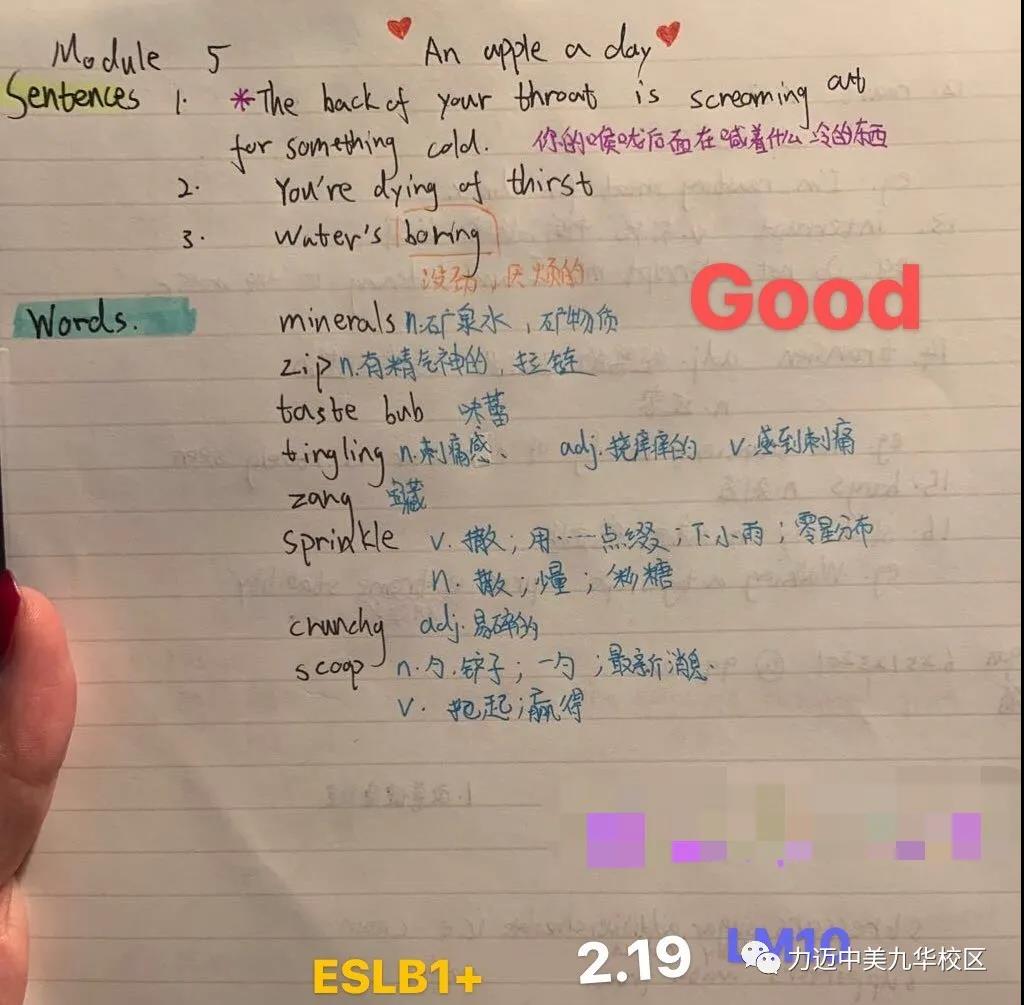 Module 5 An apple a day
Sentences 1. *The back of your throat is screaming out
for something cold. 你的喉咙后面在喊着什么冷的东西
2. You're dying of thirst
3. Water's boring
没劲,厌烦的
Good
Words. minerals n.矿泉水,矿物质
zip n.有精气神的,拉链
taste bub 味蕾
tingling n.刺痛感、 adj.挠痒痒的 v.感到刺痛
zang 宝藏
sprinkle v. 撒;用……点缀;下小雨;零星分布
n. 撒;少量;粉糖
crunchy adj.易碎的
scoop n.勺.铲子;一勺;最新消息.
v. 抱起;赢得
ESLB1+ 2.19 LM10
力迈中美九华校区